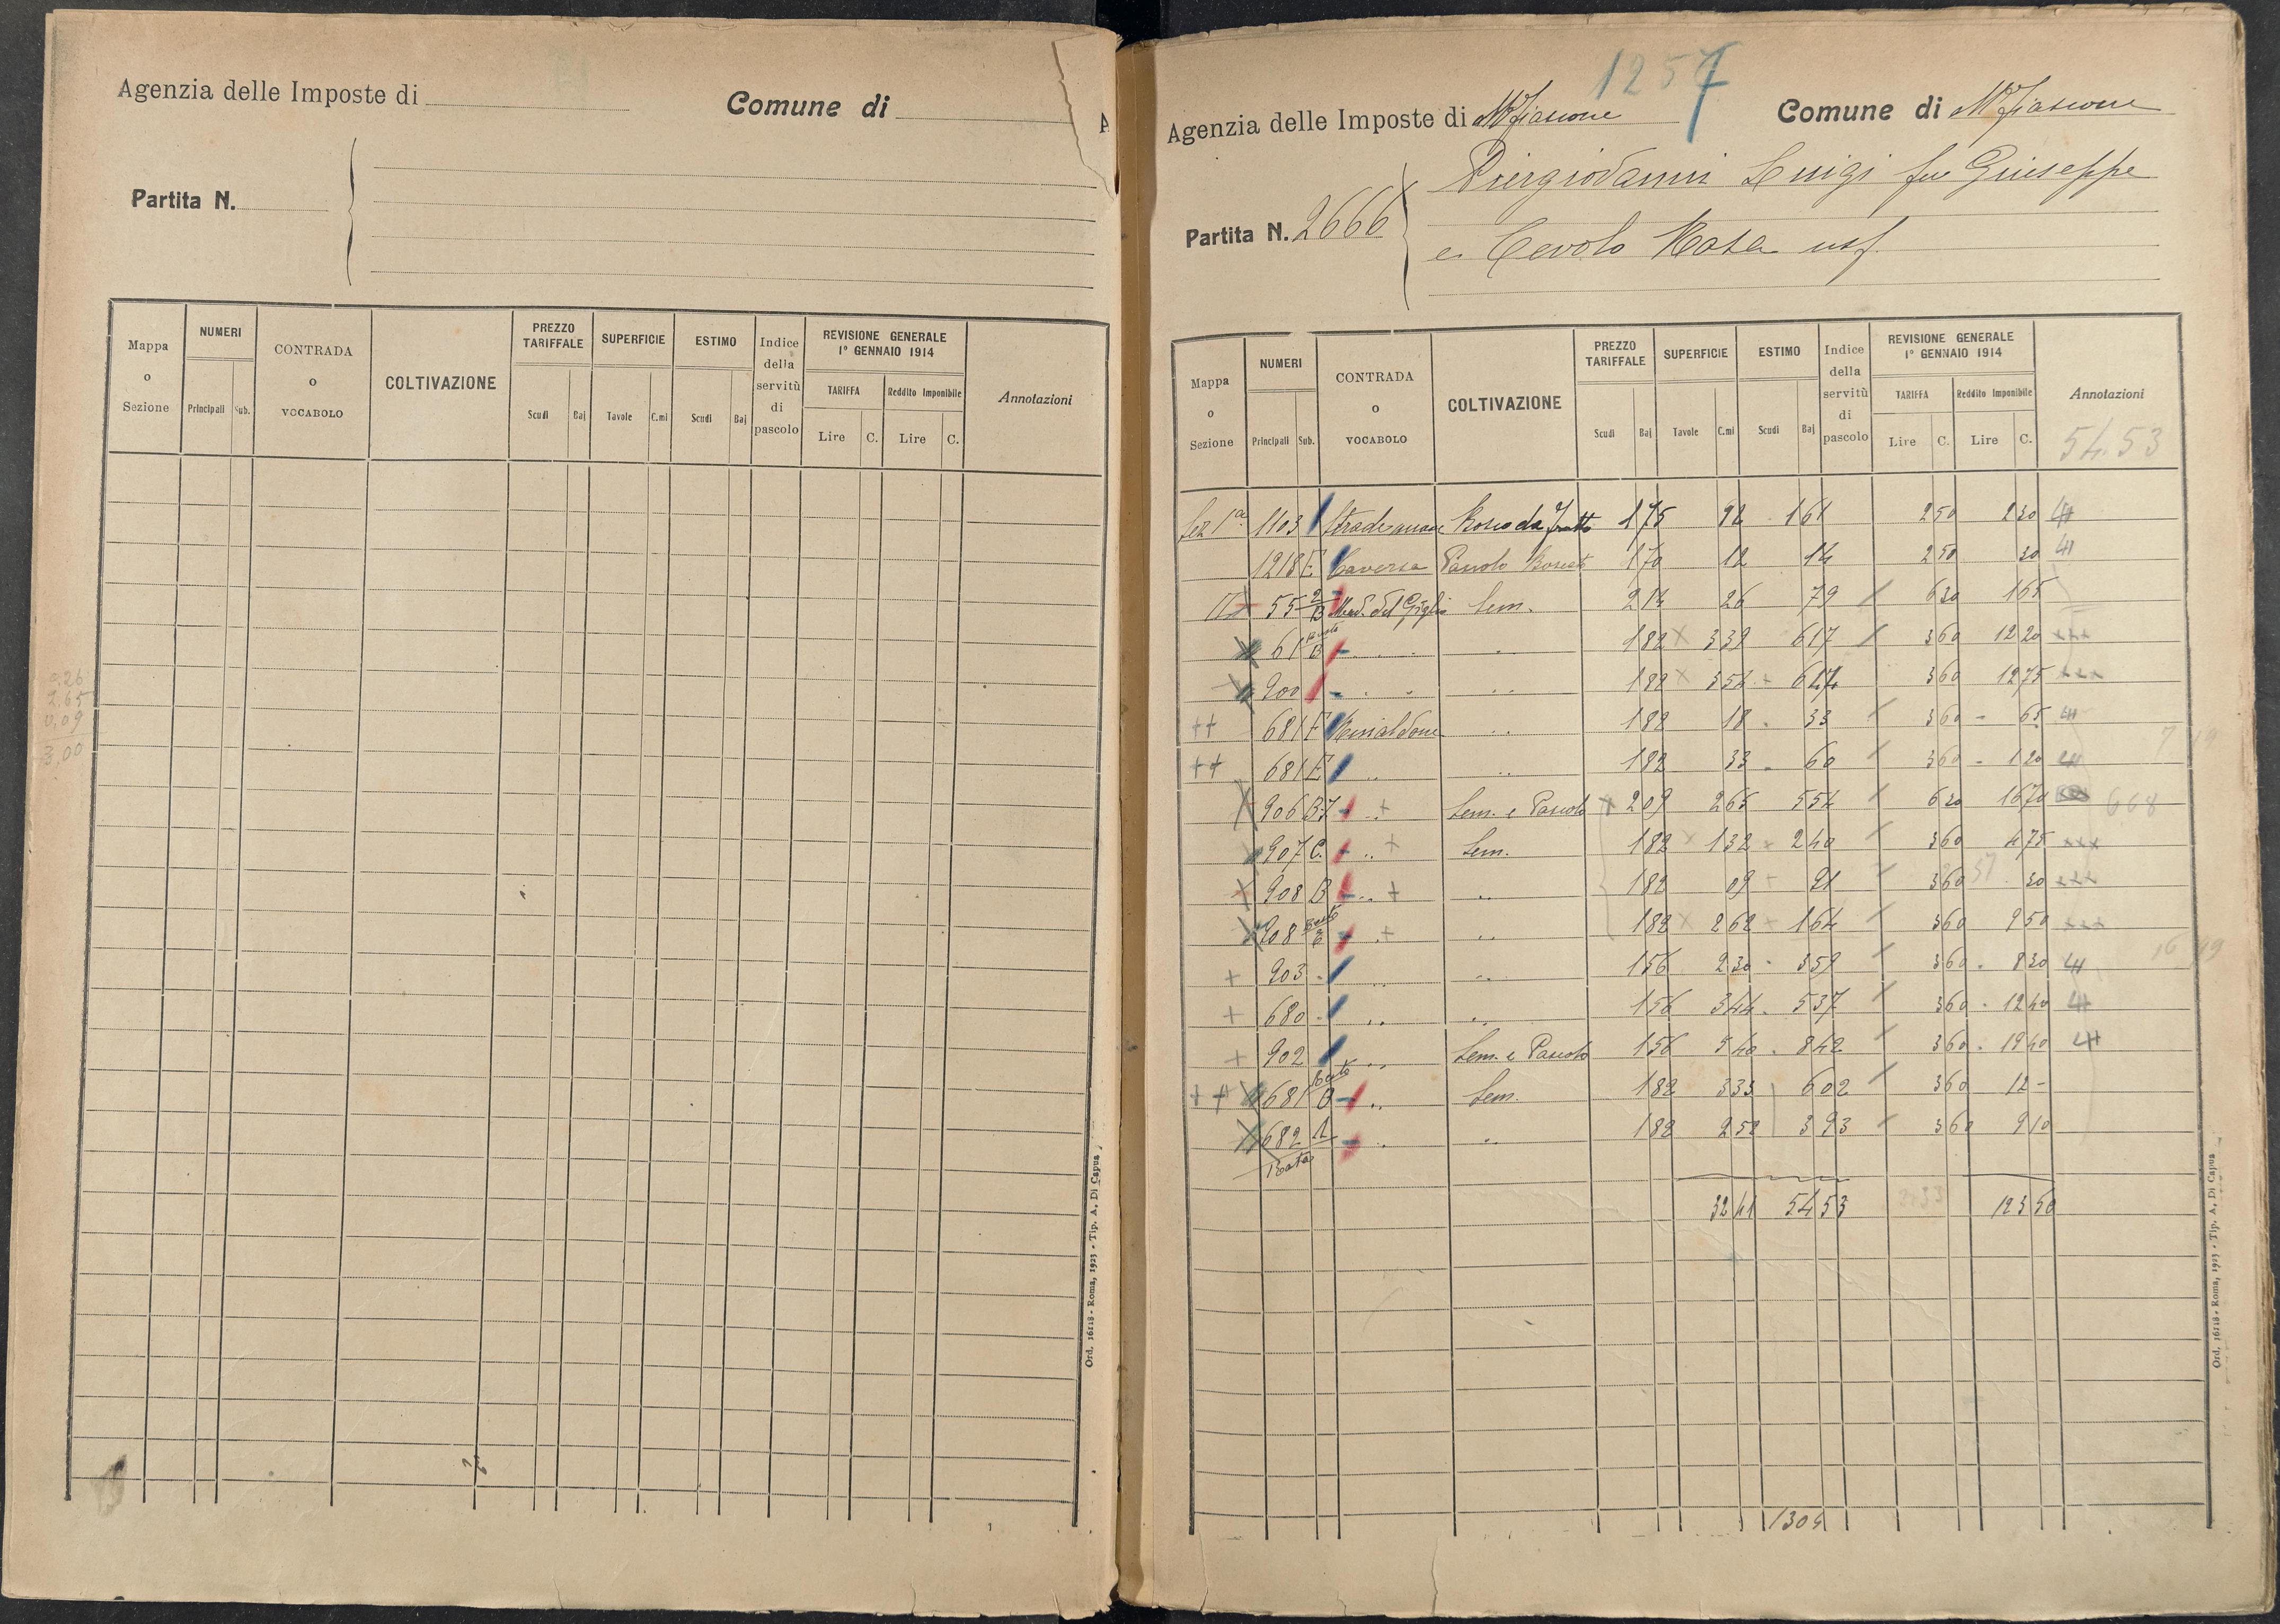 Agenzia delle Imposte di
Comune di
Partita N.
Mappa o Sezione
NUMERI
Principali Sub.
CONTRADA o VOCABOLO
COLTIVAZIONE
PREZZO TARIFFALE
Scudi Baj
SUPERFICIE
Tavole C.mi
ESTIMO
Scudi Baj
Indice della servitù di pascolo
REVISIONE GENERALE 1° GENNAIO 1914
TARIFFA
Lire C.
Reddito Imponibile
Lire C.
Annotazioni
0,26
2,65
0,09
3,00
Ord. 16118 - Roma, 1923 - Tip. A. Di Capua
1257
Agenzia delle Imposte di Mfiascone Comune di Mfiascone
Partita N. 2666
Piergiovanni Luigi fu Giuseppe
e Cevolo Rosa usf.
Mappa o Sezione
NUMERI
Principali Sub.
CONTRADA o VOCABOLO
COLTIVAZIONE
PREZZO TARIFFALE
Scudi Baj
SUPERFICIE
Tavole C.mi
ESTIMO
Scudi Baj
Indice della servitù di pascolo
REVISIONE GENERALE 1° GENNAIO 1914
TARIFFA
Lire C.
Reddito Imponibile
Lire C.
Annotazioni
54.53
Sez 1a 1103 Bosco da frutto 1 75 92 1 61 2 50 2 30
1218 E Pascolo Boscato 1 70 12 14 2 50 30
II 55 2/B Mad. del Giglio Sem. 2 14 26 79 6 30 1 65
61 B 1 82 3 39 6 17 3 60 12 20
900 1 82 3 54 6 44 3 60 12 75
++ 681 F Rinaldone 1 82 18 33 3 60 65
++ 681 E 1 82 33 60 3 60 1 20
906 B7 + Sem. e Pascolo 2 09 2 65 5 54 6 30 16 70 668
907 C. + Sem. 1 82 1 32 2 40 3 60 4 75
908 B + 1 82 09 21 3 60 30
208 + 1 82 2 62 1 64 3 60 9 50
+ 903 1 56 2 30 3 59 3 60 8 30
+ 680 1 56 3 44 5 37 3 60 12 40
+ 902 Sem. e Pascolo 1 56 5 40 8 42 3 60 19 40
++ 681 B Sem. 1 82 3 33 6 02 3 60 12 -
682 1 1 82 2 52 3 93 3 60 9 10
Rata
32 41 54 53 123 50
Ord. 16118 - Roma, 1923 - Tip. A. Di Capua